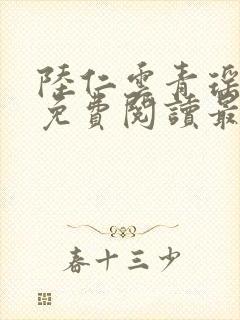 陸仁雲青瑶
免費閱讀最
春十三少